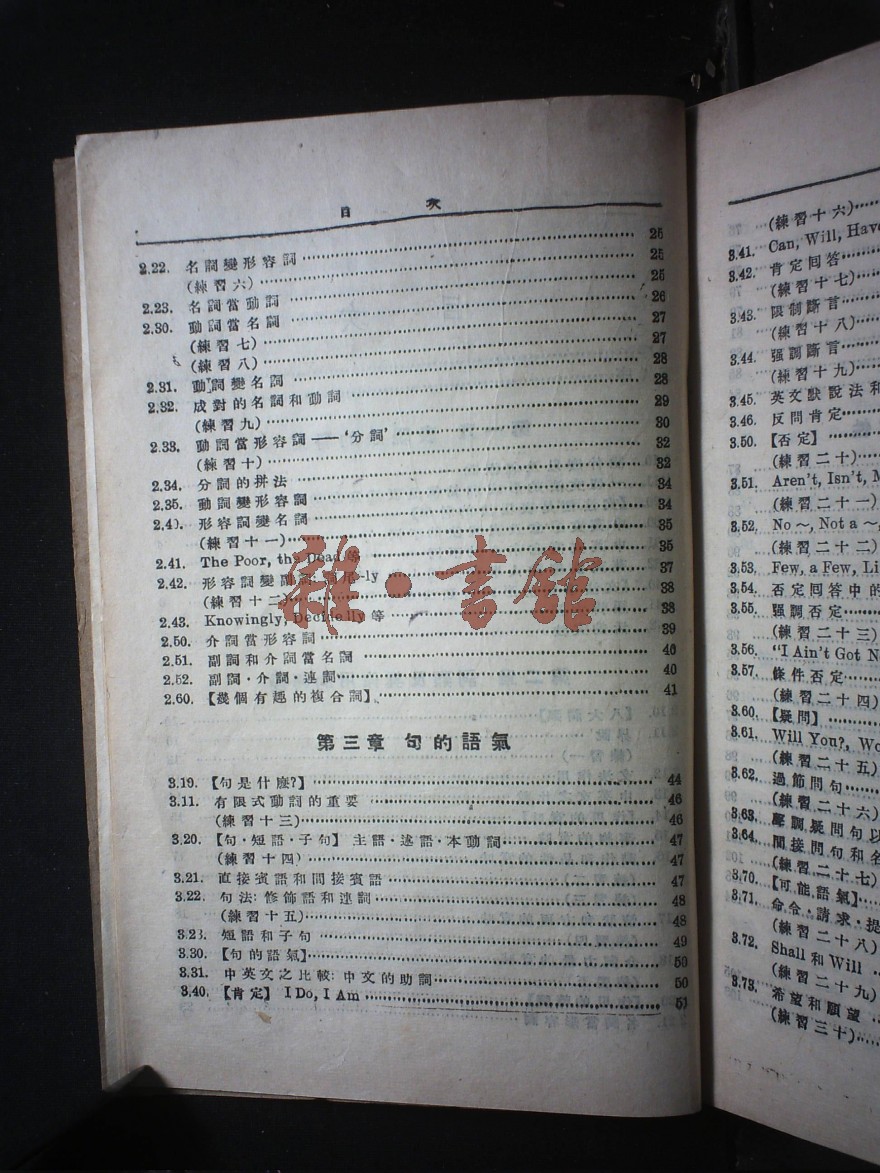 目 次
2.22. 名詞變形容詞 25
(練習六) 25
2.23. 名詞當動詞 25
2.30. 動詞當名詞 26
(練習七) 27
(練習八) 27
2.31. 動詞變名詞 28
2.32. 成對的名詞和動詞 28
(練習九) 29
2.33. 動詞當形容詞——‘分詞’ 30
(練習十) 32
2.34. 分詞的拼法 32
2.35. 動詞變形容詞 34
2.4). 形容詞變名詞 34
(練習十一) 35
2.41. The Poor, the Dead 等 35
2.42. 形容詞變副詞: -ly 37
(練習十二) 38
2.43. Knowingly, Decidedly 等 38
2.50. 介詞當形容詞 39
2.51. 副詞和介詞當名詞 40
2.52. 副詞·介詞·連詞 40
2.60. 【幾個有趣的複合詞】 41
第三章 句的語氣
3.19. 【句是什麼?】 44
3.11. 有限式動詞的重要 46
(練習十三) 46
3.20. 【句·短語·子句】 主語·述語·本動詞 47
(練習十四) 47
3.21. 直接賓語和間接賓語 47
3.22. 句法: 修飾語和連詞 48
(練習十五) 48
3.23. 短語和子句 49
3.30. 【句的語氣】 50
3.31. 中英文之比較: 中文的助詞 50
3.40. 【肯定】 I Do, I Am 51
雜·書館
(練習十六)
3.41. Can, Will, Have
3.42. 肯定回答
(練習十七)
3.43. 限制斷言
(練習十八)
3.44. 强調斷言
(練習十九)
3.45. 英文默說法和
3.46. 反問肯定
3.50. 【否定】
(練習二十)
3.51. Aren't, Isn't, M
(練習二十一)
3.52. No ~, Not a ~,
(練習二十二)
3.53. Few, a Few, Li
3.54. 否定回答中的
3.55. 强調否定
(練習二十三)
3.56. "I Ain't Got N
3.57. 條件否定
(練習二十四)
3.60. 【疑問】
3.61. Will You?, Wo
(練習二十五)
3.62. 過節問句
(練習二十六)
3.63. 强調疑問句以
3.64. 間接問句和
(練習二十七)
3.70. 【可能語氣】
3.71. 命令·請求·提
(練習二十八)
3.72. Shall 和 Will
(練習二十九)
3.73. 希望和願望
(練習三十)